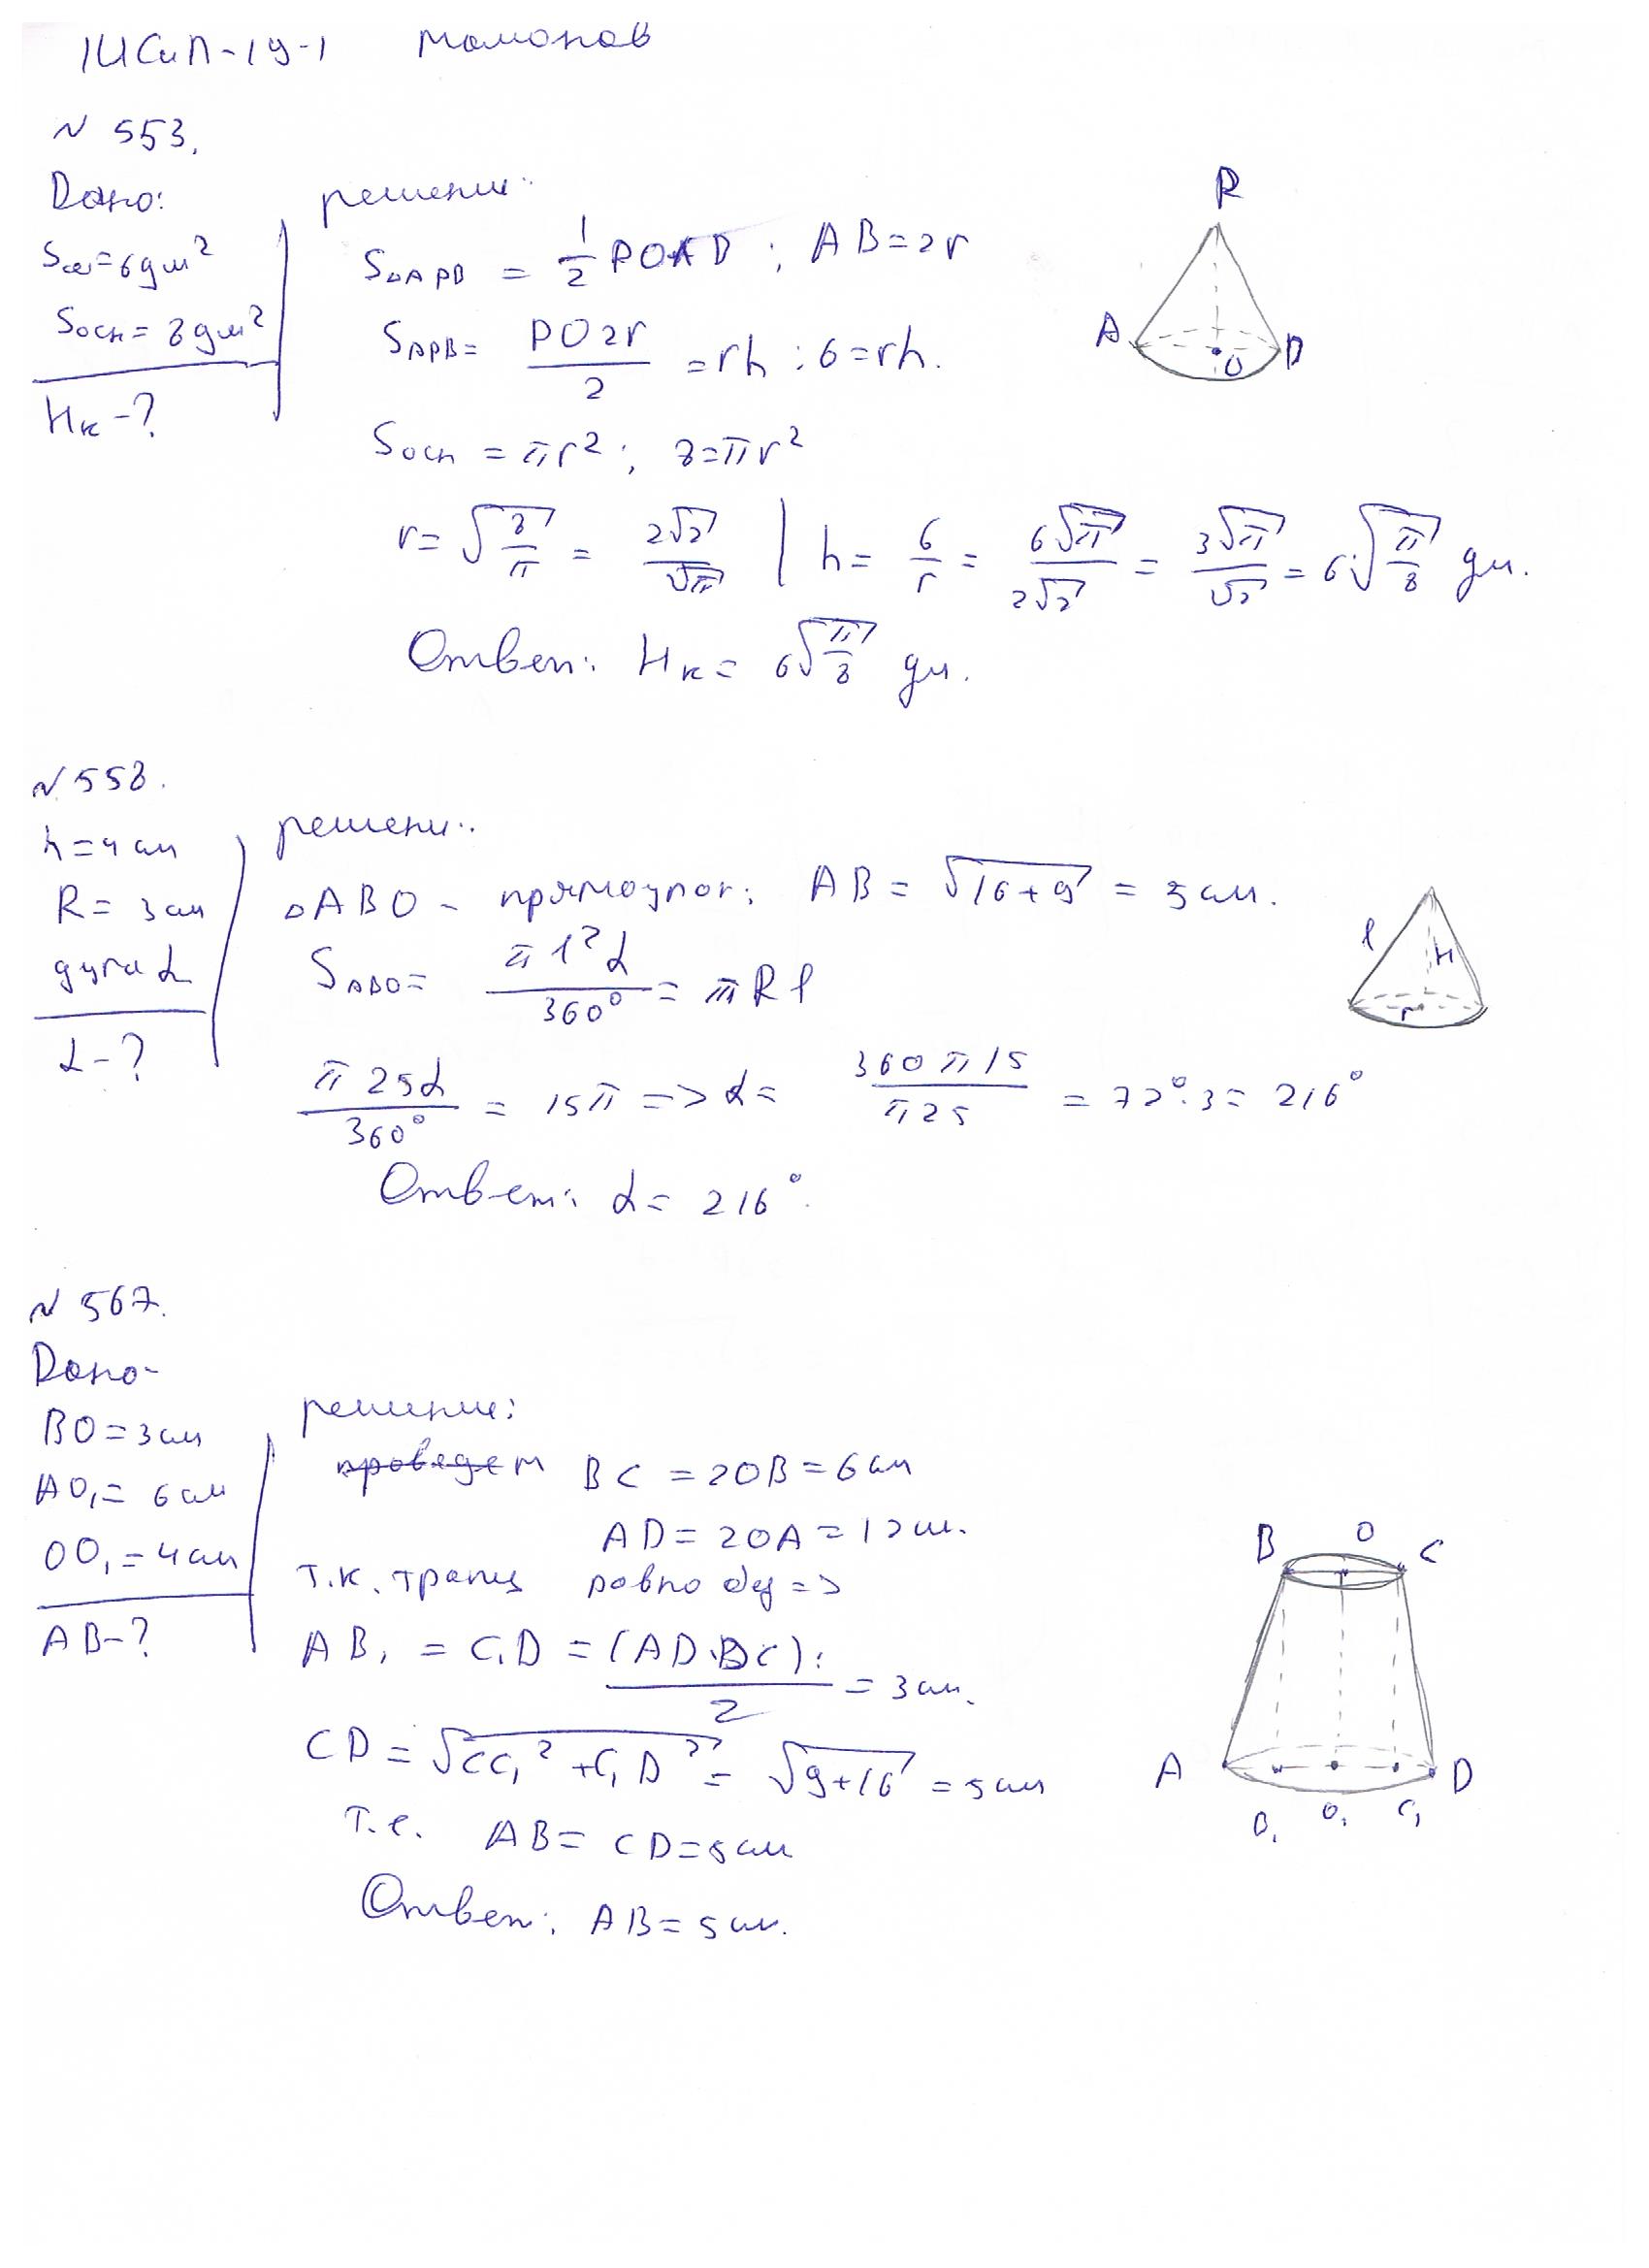 1ИСиП-19-1 Мамонов
N 553.
Дано:
Sсеч=6дм²
Sосн=8дм²
Hк-?
решение:
S△APB = 1/2 POAB; AB=2r
SAPB= PO2r/2 =rh; 6=rh.
Sосн = πr²; 8=πr²
r= √(8/π) = 2√2/√π | h= 6/r = 6√π/2√2 = 3√π/√2 = 6√(π/8) дм.
Ответ: Hк= 6√(π/8) дм.
P
A
O
B
N 558.
h=4см
R=3см
дуга α
α-?
решени..
△ABO - прямоугол: AB= √(16+9) = 5см.
SABO= πl²α/360° = πRl
π25α/360° = 15π => α= 360π15/π25 = 72°·3= 216°
Ответ: α= 216°.
l
H
r
N 567.
Дано-
BO=3см
AO₁= 6см
OO₁=4см
AB-?
решение:
проведем BC =2OB=6см
AD=2OA=12см.
т.к. трапец равнобед =>
AB₁ = C₁D = (AD·BC):/2 = 3см.
CD = √(CC₁²+C₁D²) = √(9+16) = 5см
т.е. AB= CD=5см
Ответ: AB=5см.
B
O
C
A
D
B₁
O₁
C₁